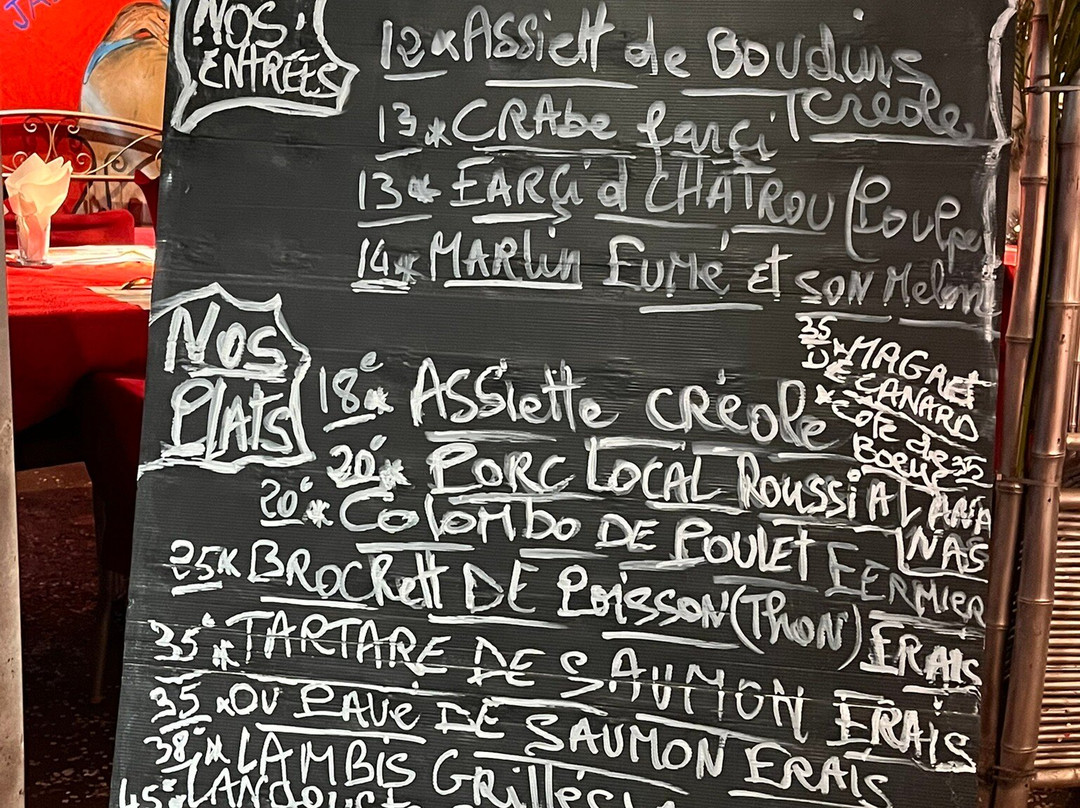 JA
NOS
ENTRÉES
12€*Assiett de Boudins
Créole
13*CRAbe farçi
13€*FARÇi d CHATROU (Poulpe
14€*MARLin FUMé et SON Melon
NOS
PLATS
35*MAGRET
DE CANARD
*COTE de
Boeuf 35
18€*ASSiette CRéole
20€*PORC LOCAL ROUSSI A L'ANA
NAS
20€*COLOMbO DE POULET FERMIER
25*BROCHett DE POISSON (THON) FRAIS
35€*TARTARE DE SAUMON FRAIS
35*OU PAVé DE SAUMON FRAIS
38€*LAMBIS GRillés
45€*LANGOUSTE